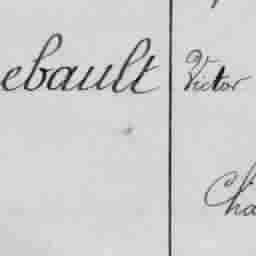 ebault Victor
Cha